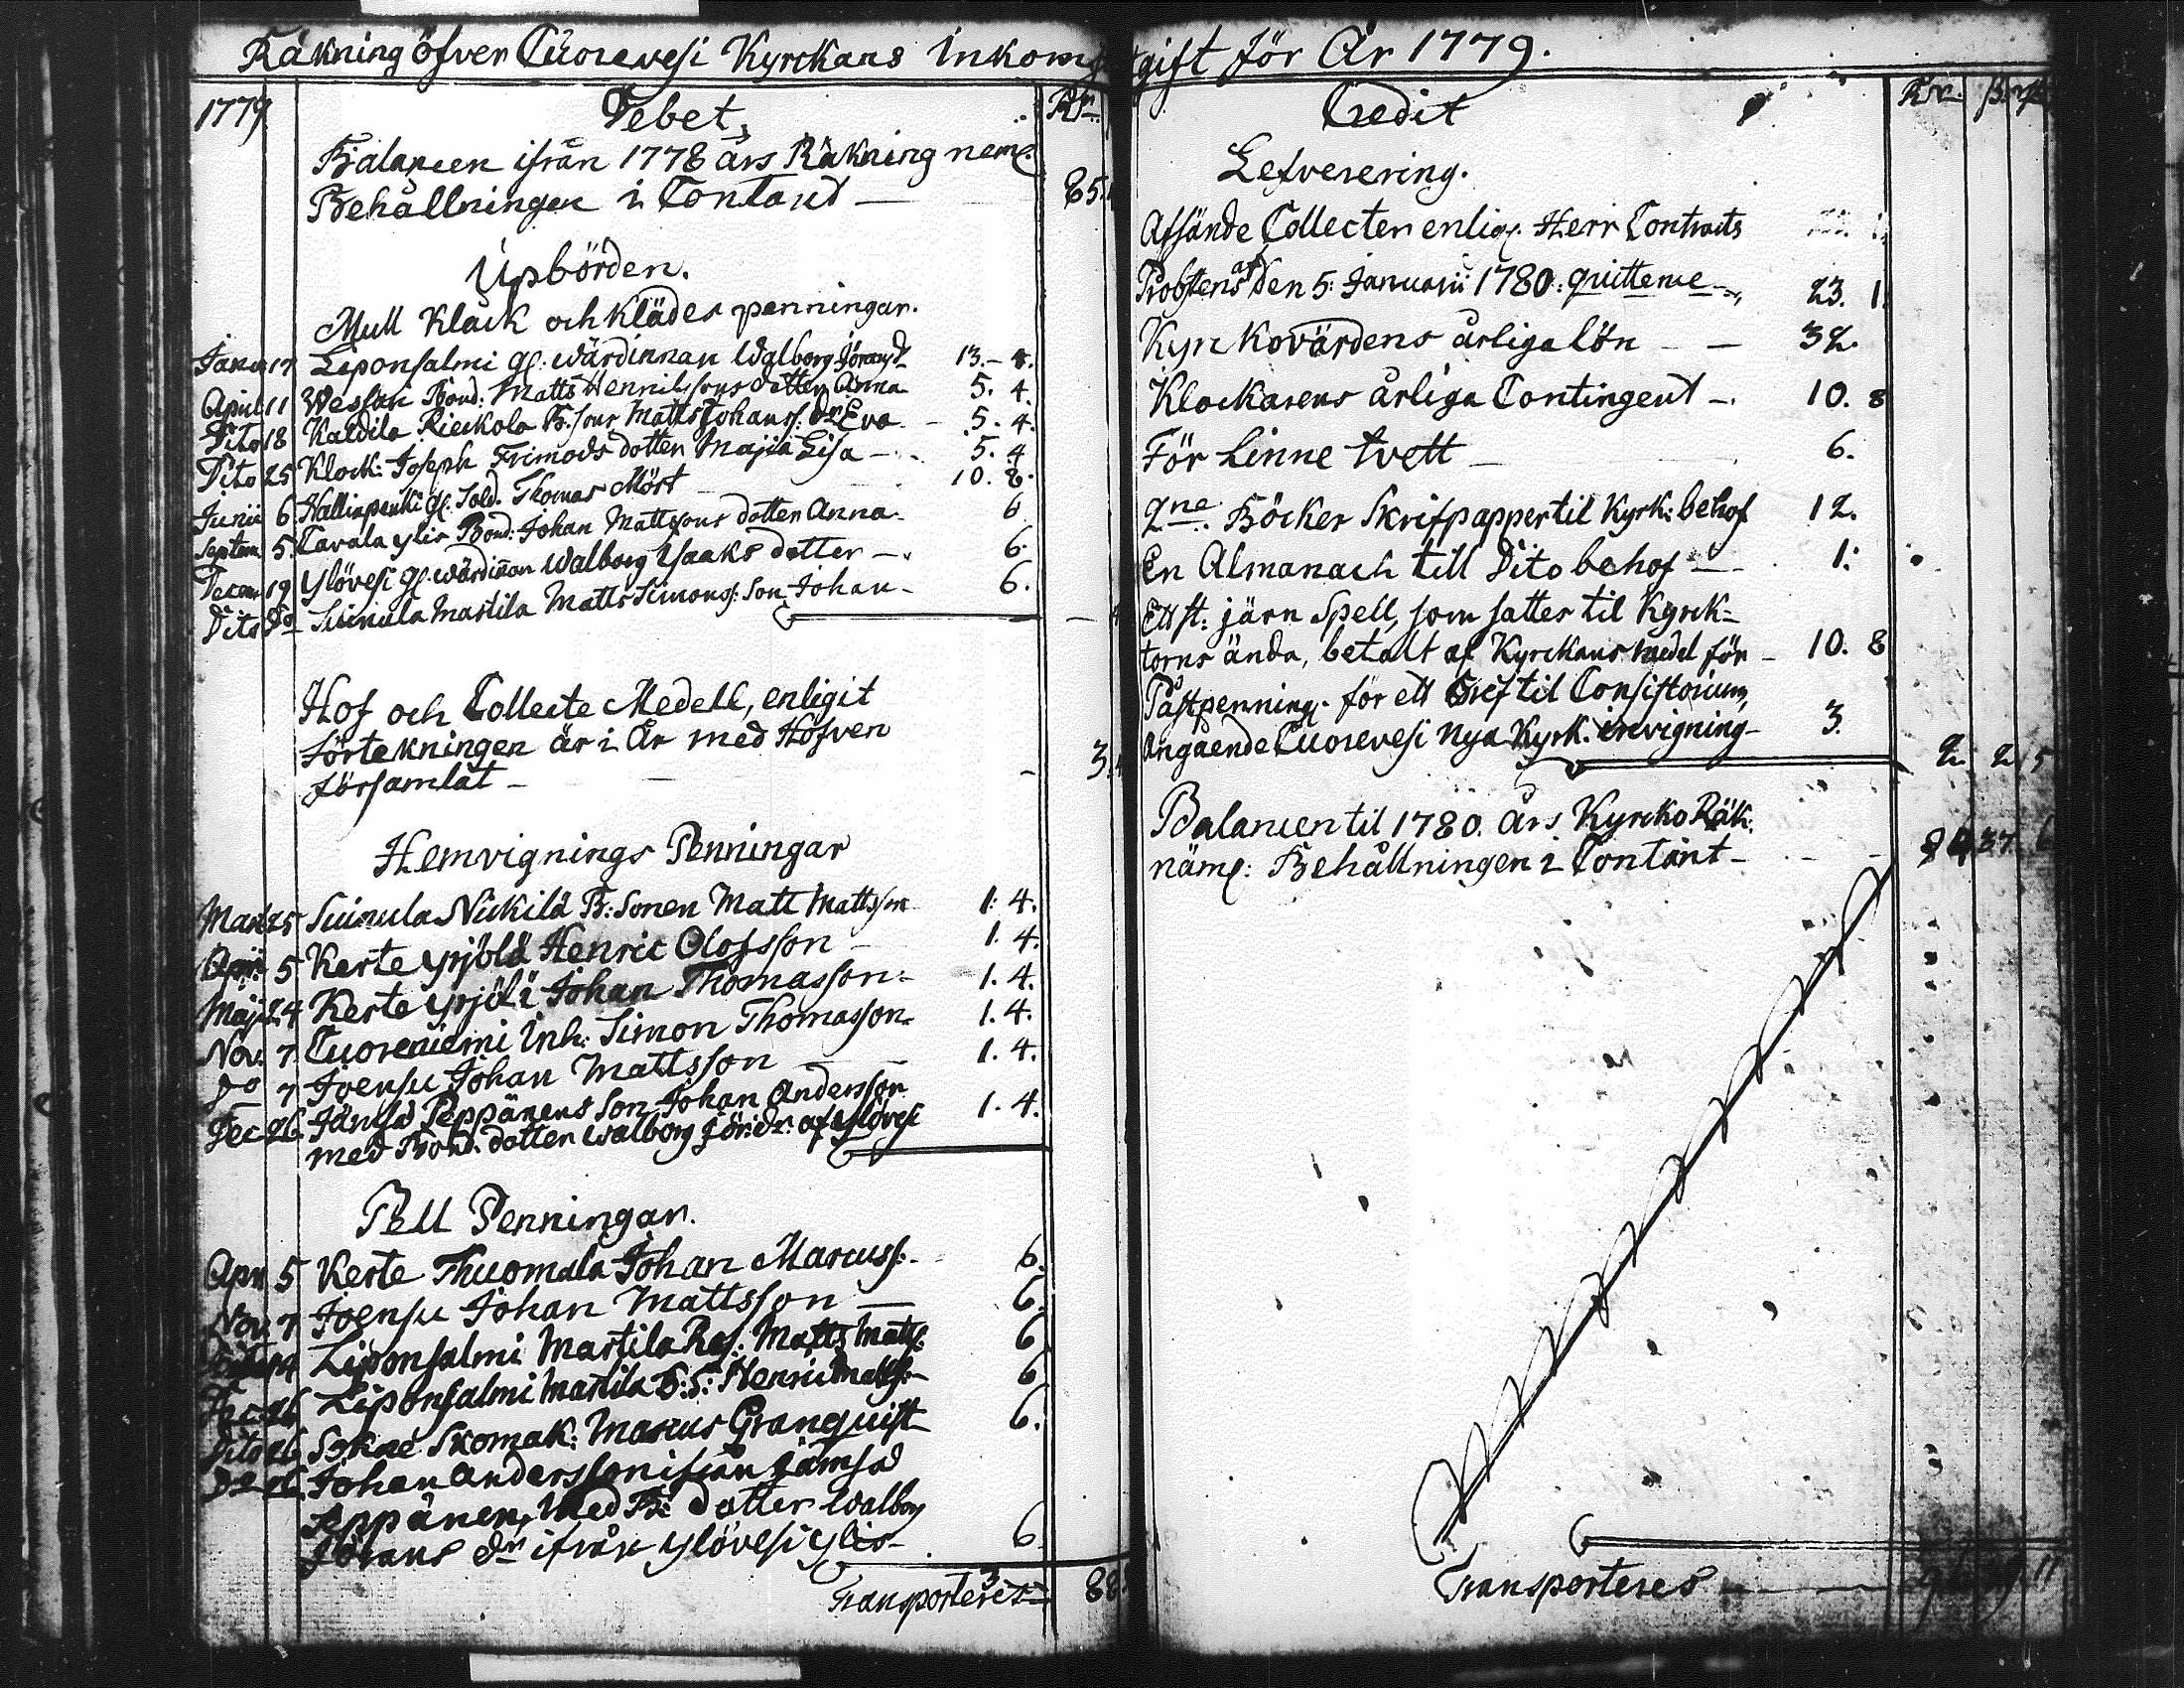 Räkning öfver Cuorevesi Kyrckans Inkomst
1779 Debet, Rdr.
Balancen ifrån 1778 års Räkning neml.
Behållningen i Contant — 85.
Upbörden.
Mull Klåck och Klädes penningar.
Janu 17 Leponsalmi gl: wärdinnan Walborg Göransdr 13. – 4.
April 11 Wessari Bond: Matts Hennikssons dotter Anna 5. 4.
Dito 18 Kaldila Rieckola B. sons Matts Johanss: Dr Eva 5. 4.
Dito 25 Klock: Joseph Frimods dotter Majia Lisa – 5. 4
Junii 6 Hallinpenki gl. Sold. Thomas Möst 10. 8.
Septem 5. Lavala ylis Bond: Johan Mattssons dotter Anna 6
Decem 19 Ylövesi gl. wärdinnan Walborg Ysaaks dotter – 6.
Dito Do Suinula Martila Matts Simonss: Son Johan – 6.
Hof och Collecte Medell, enligit
förtekningen är i År med Håfven
församlat – 3.
Hemvignings Penningar
Mart 25 Suinula Nickilä B: Sonen Matt Mattsson 1. 4.
Apr. 5 Kerte yrjölä Henric Olofsson – 1. 4.
Maji 24 Kerte yrjölä Johan Thomasson 1. 4.
Nov. 7 Cuoreniemi Inh: Simon Thomasson 1. 4.
Do 7 Joensu Johan Mattsson 1. 4.
Dec 26. Jämsä Seppänens Son Johan Andersson 1. 4.
med Bond. dotter Walborg Jör: dr. af Ylövesi
Pell Penningar.
Apr. 5 Kerte Thuomala Johan Marcuss: 6.
Nov. 7 Joensu Johan Mattsson — 6.
14 Leponsalmi Martila Matts Matts: 6
Dec 26 Leponsalmi Martila B: S: Henric Mattss: 6
Dito 26 Sokne Skomak: Marcus Granquist 6.
Do 26 Johan Andersson ifrån Jämsä
Seppänen, med B: dotter Walborg
Jörans Dr ifrån Ylövesi ylis – 6
Transporteres 88
gift för År 1779.
Credit Rdr.
Lefverering.
Afsände Collecten enligt Herr Contracts
Probstens af den 5: Januarii 1780: quittence – 23. 1.
Kyrckovärdens årliga lön – — 32.
Klockarens årliga Contingent – 10. 8
För Linne tvett – 6.
2ne. Böcker Skrifpapper til Kyrk: behof 12.
En Almanach till Dito behof – 1.
Ett st: järn Spell, som sattes til Kyrck-
torns ända, betalt af Kyrckans medel för – 10. 8
Påstpenning. för ett Bref til Consistorium,
angående Cuorevesi Nya Kyrk. invigning – 3.
2 2 5
Balancen til 1780. års Kyrcko Räk:
näml: Behållningen i Contant – 37. 6
Transporteres 11